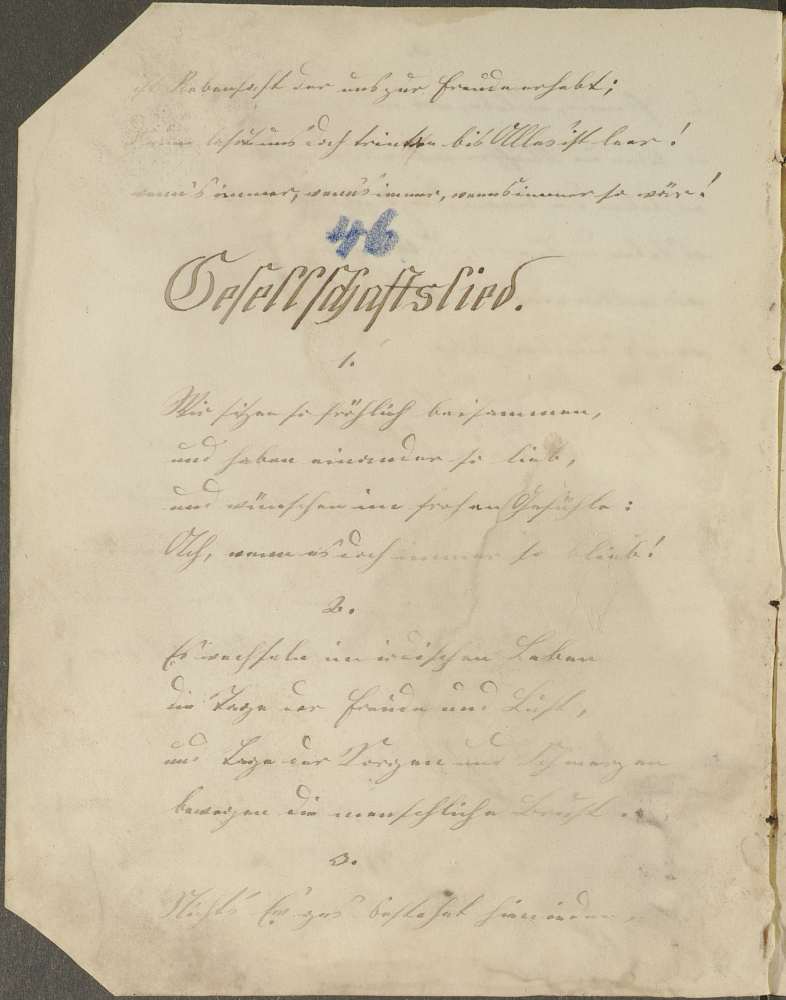 ist Rebensaft der uns zur Freude erhebt;
lasst uns doch trinken bis Alles ist leer!
wenn's immer, wenn's immer, wenns immer so wär!
46
Gesellschaftslied.
1.
Wir sitzen so fröhlich beisammen,
und haben einander so lieb,
und wünschen im frohen Gefühle:
Ach, wenn es doch immer so blieb!
2.
Es wechseln im irdischen Leben
die Tage der Freude und Lust,
und Tage der Sorgen und Schmerzen
bewegen die menschliche Brust.
3.
Nichts Ew'ges bestehet hienieden,